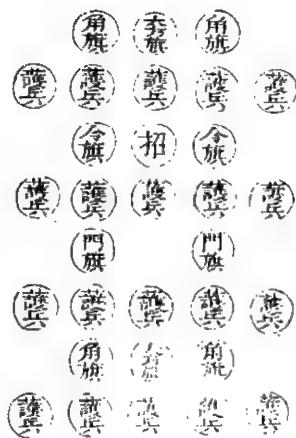 角旗 旁旗 角旗
護兵 護兵 護兵 護兵 護兵
令旗 招 令旗
護兵 護兵 護兵 護兵 護兵
門旗 門旗
護兵 護兵 護兵 護兵 護兵
角旗 旁旗 角旗
護兵 護兵 護兵 護兵 護兵